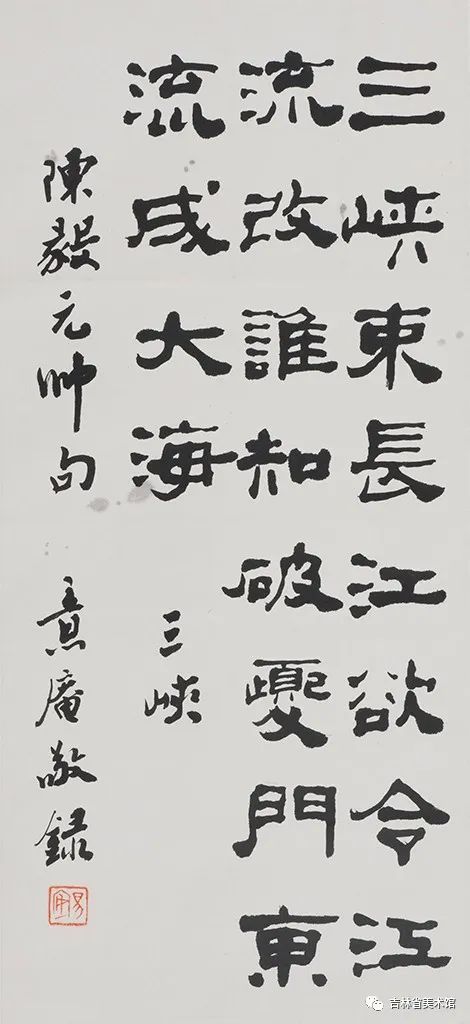 三峽束長江欲令江
流改誰知破夔門東
流成大海
三峽
陳毅元帥句 意庵敬録
吉林省美术馆